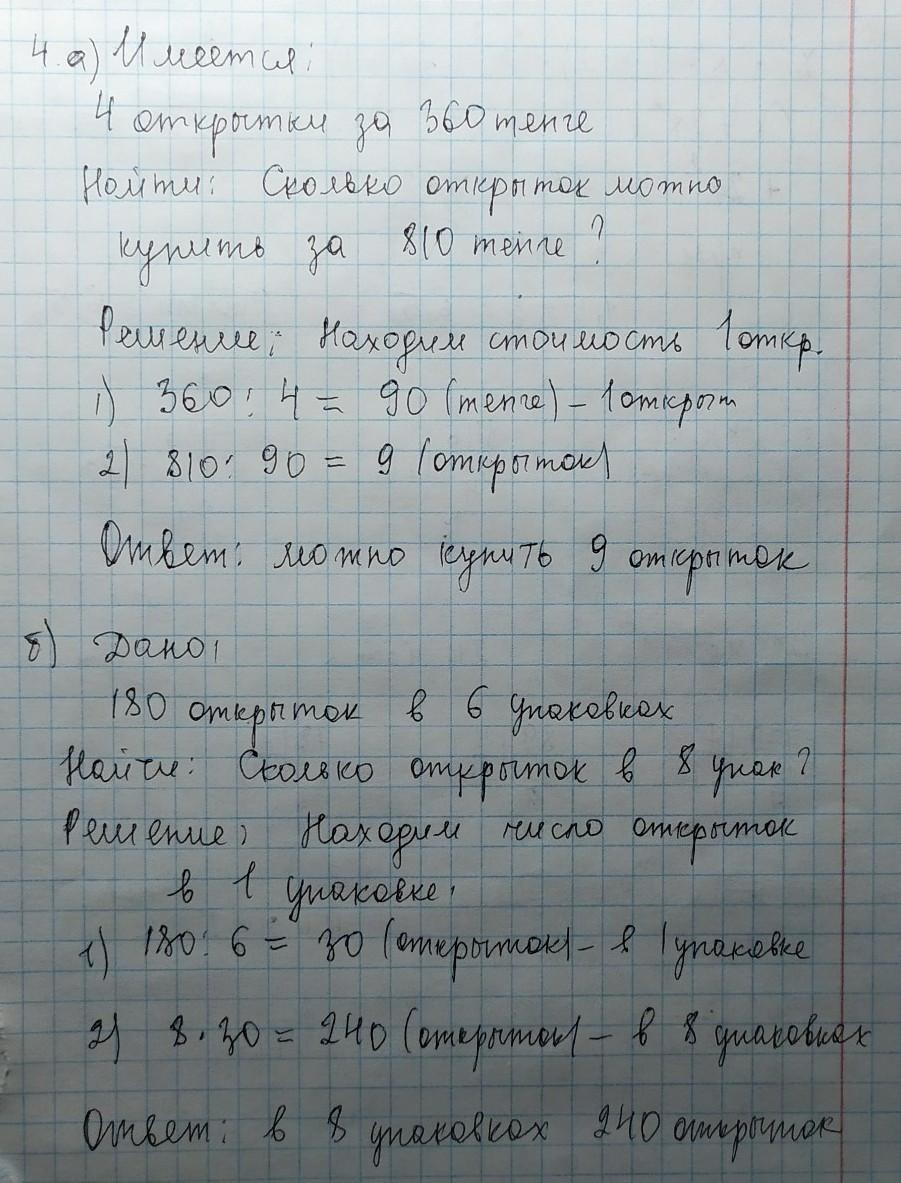 4. а) Имеется:
4 открытки за 360 тенге
Найти: Сколько открыток можно
купить за 810 тенге?
Решение: Находим стоимость 1 откр.
1) 360 : 4 = 90 (тенге) – 1 открыт
2) 810 : 90 = 9 (открыток)
Ответ: можно купить 9 открыток
б) Дано:
180 открыток в 6 упаковках
Найти: Сколько открыток в 8 упак?
Решение: Находим число открыток
в 1 упаковке:
1) 180 : 6 = 30 (открыток) – в 1 упаковке
2) 8 · 30 = 240 (открыток) – в 8 упаковках
Ответ: в 8 упаковках 240 открыток